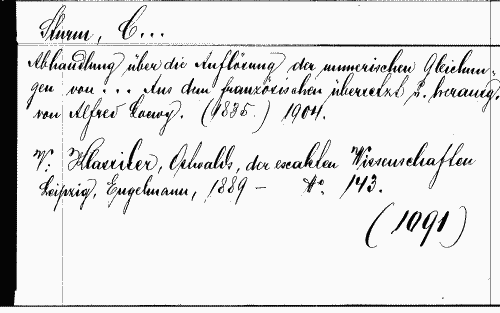 Sturm, C...
Abhandlung über die Auflösung der numerischen Gleichun-
gen von ... Aus dem französischen übersetzt u. herausg.
von Alfred Loewy. (1835.) 1904.
V: Klassiker, Ostwalds, der exakten Wissenschaften
Leipzig, Engelmann, 1889 – No. 143.
(1091)